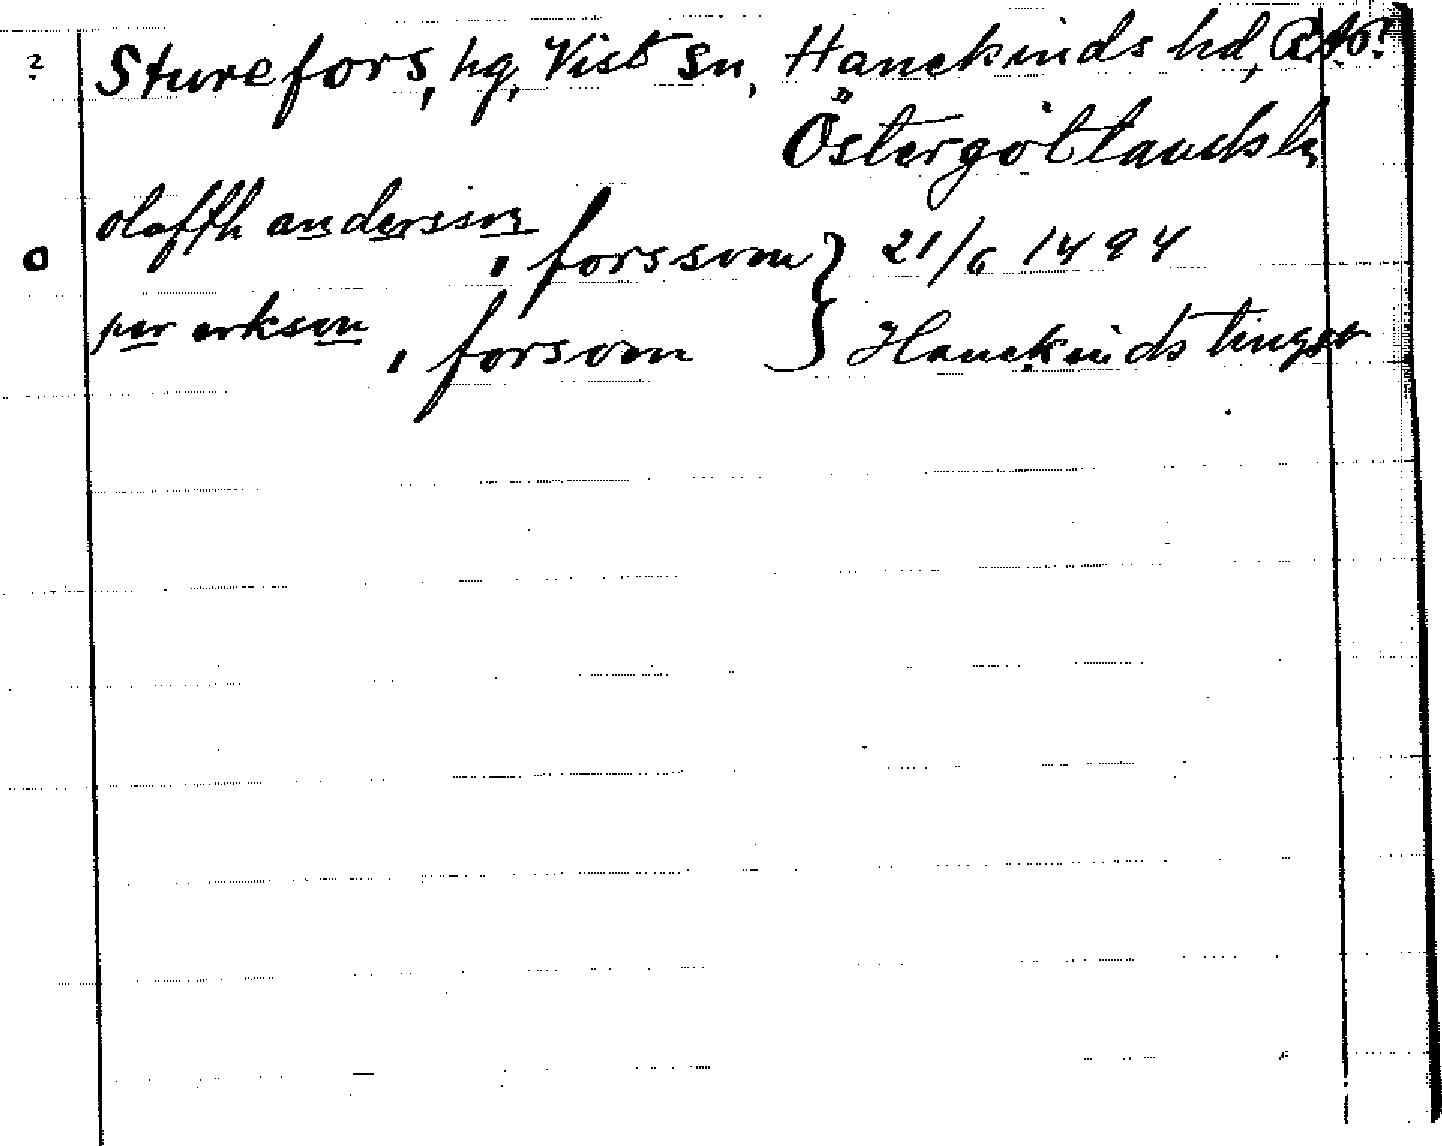 ? Sturefors, hg, Vist sn, Hanekinds hd,
Östergötlands l.
olaffh andersson
o , forssom } 21/6 1494
per erkson
, forsom } Hanekinds tingsv